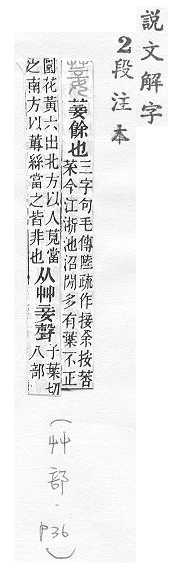 說文解字
2段注本
菨 菨餘也
三字句毛傳陸疏作接余按莕
菜今江浙池沼間多有葉不正
圜花黃六出北方以人莧當
之南方以蓴絲當之皆非也
从艸妾聲
子葉切
八部
（艸部．P36）